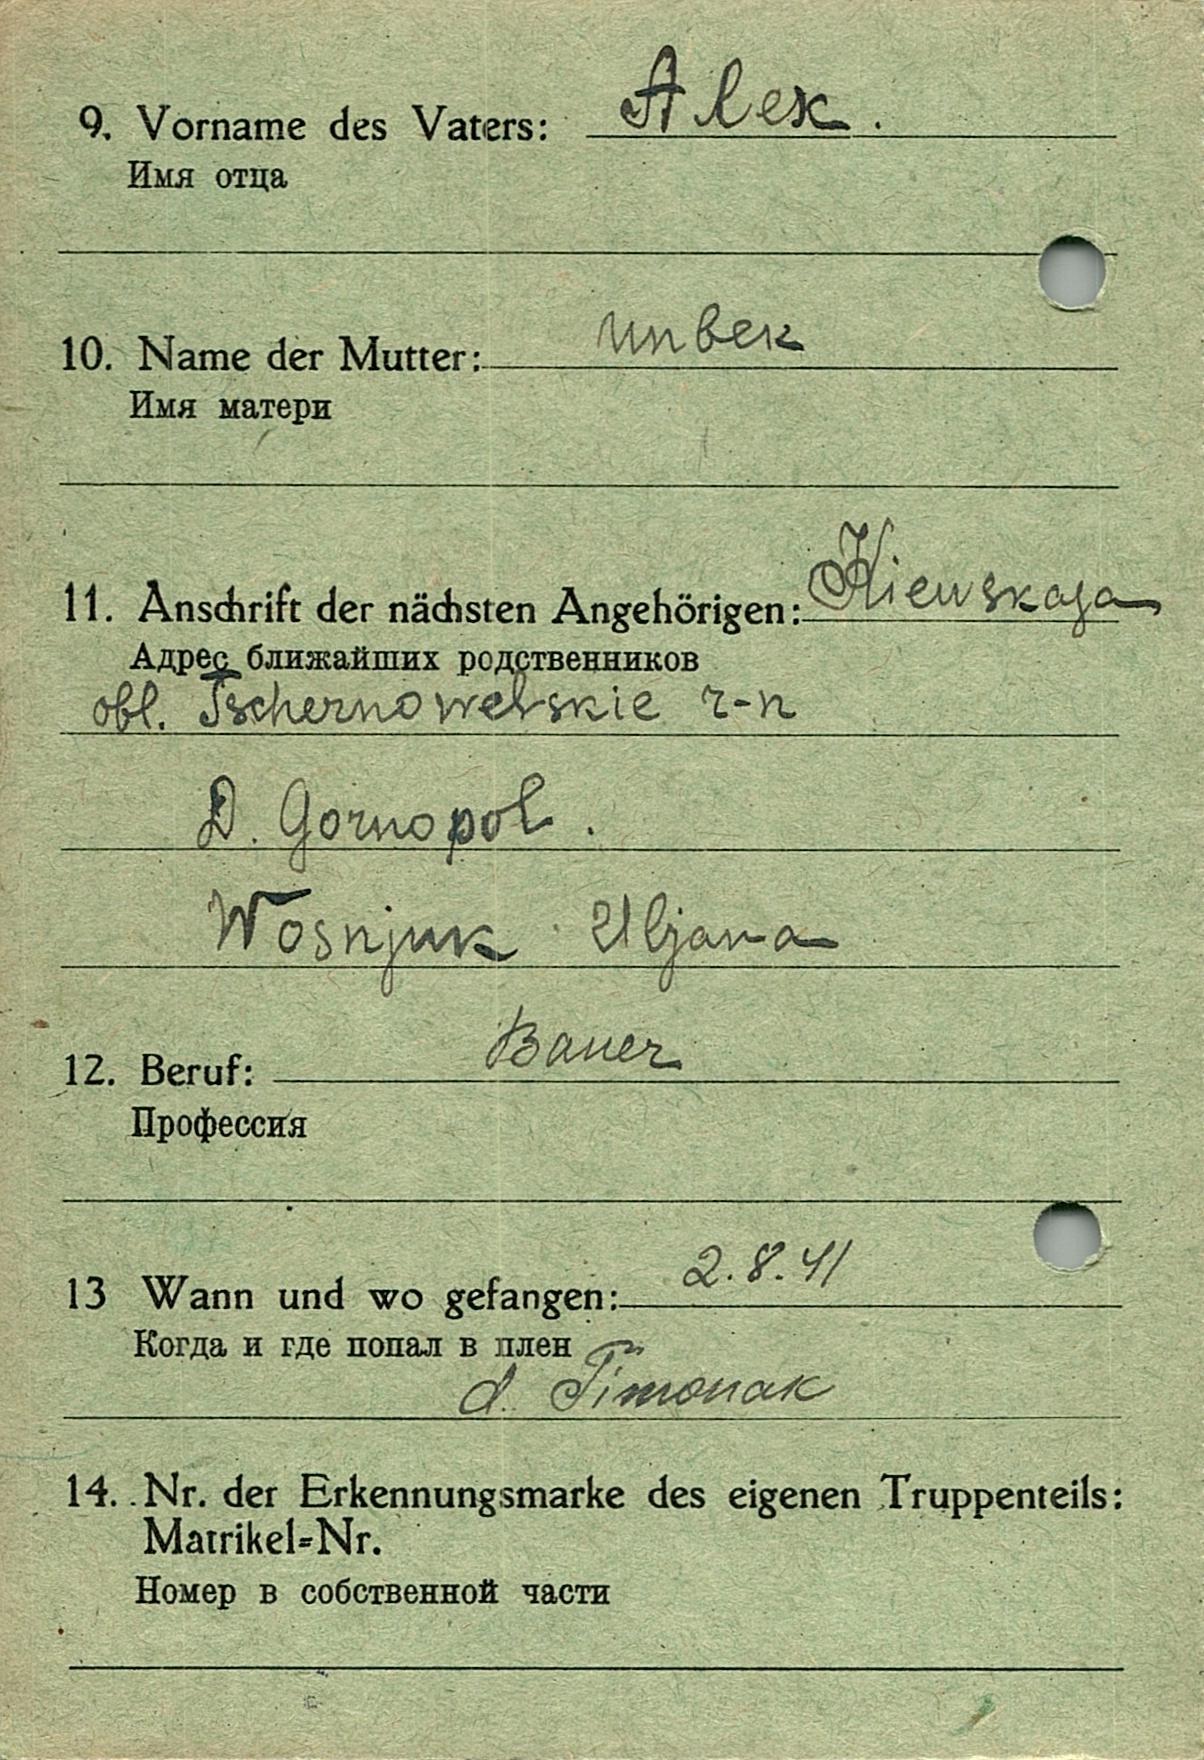 9. Vorname des Vaters: Alex.
Имя отца
10. Name der Mutter: unbek
Имя матери
11. Anschrift der nächsten Angehörigen: Kiewskaja
Адрес ближайших родственников
obl. Tschernowelskie r-n
D. Gornopol.
Wosnjuk Uljana
12. Beruf: Bauer
Профессия
13 Wann und wo gefangen: 2.8.41
Когда и где попал в плен
d. Timonak
14. Nr. der Erkennungsmarke des eigenen Truppenteils:
Matrikel=Nr.
Номер в собственной части